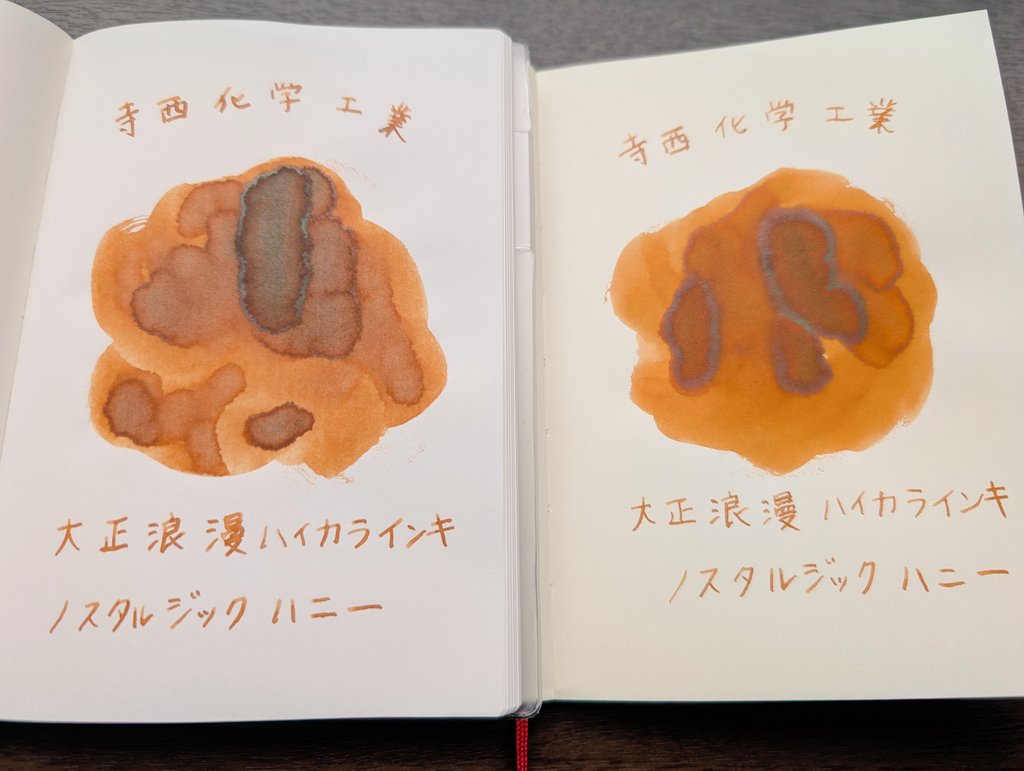 寺西化学工業
大正浪漫ハイカラインキ
ノスタルジックハニー
寺西化学工業
大正浪漫ハイカラインキ
ノスタルジックハニー